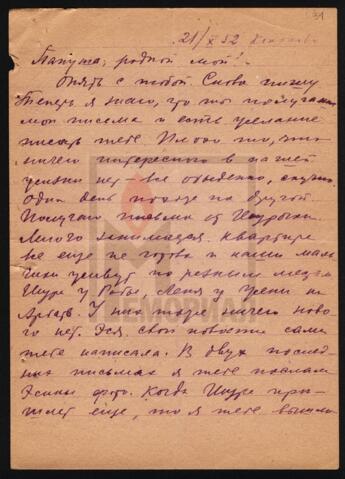 31
21/X 52
Папуша, родной мой!
Опять с тобой. Снова пишу
Теперь я знаю, что ты получаешь
мои письма и есть желание
писать тебе. Плохо то, что
ничего интересного в нашей
жизни нет – все обыденно, скучно.
Один день похож на другой.
Получаю письма от Шурочки.
Много занимается. Квартира
ее еще не готова и наши маль
чики живут по разным местам
Шура у Леня у на
Арбате. У нас тоже ничего ново
го нет. Эся, свои новости сама
тебе написала. В двух послед
них письмах я тебе послала
Эсины фото. Когда Шура при-
шлет еще, то я тебе вышлю
МЕМОРИАЛ